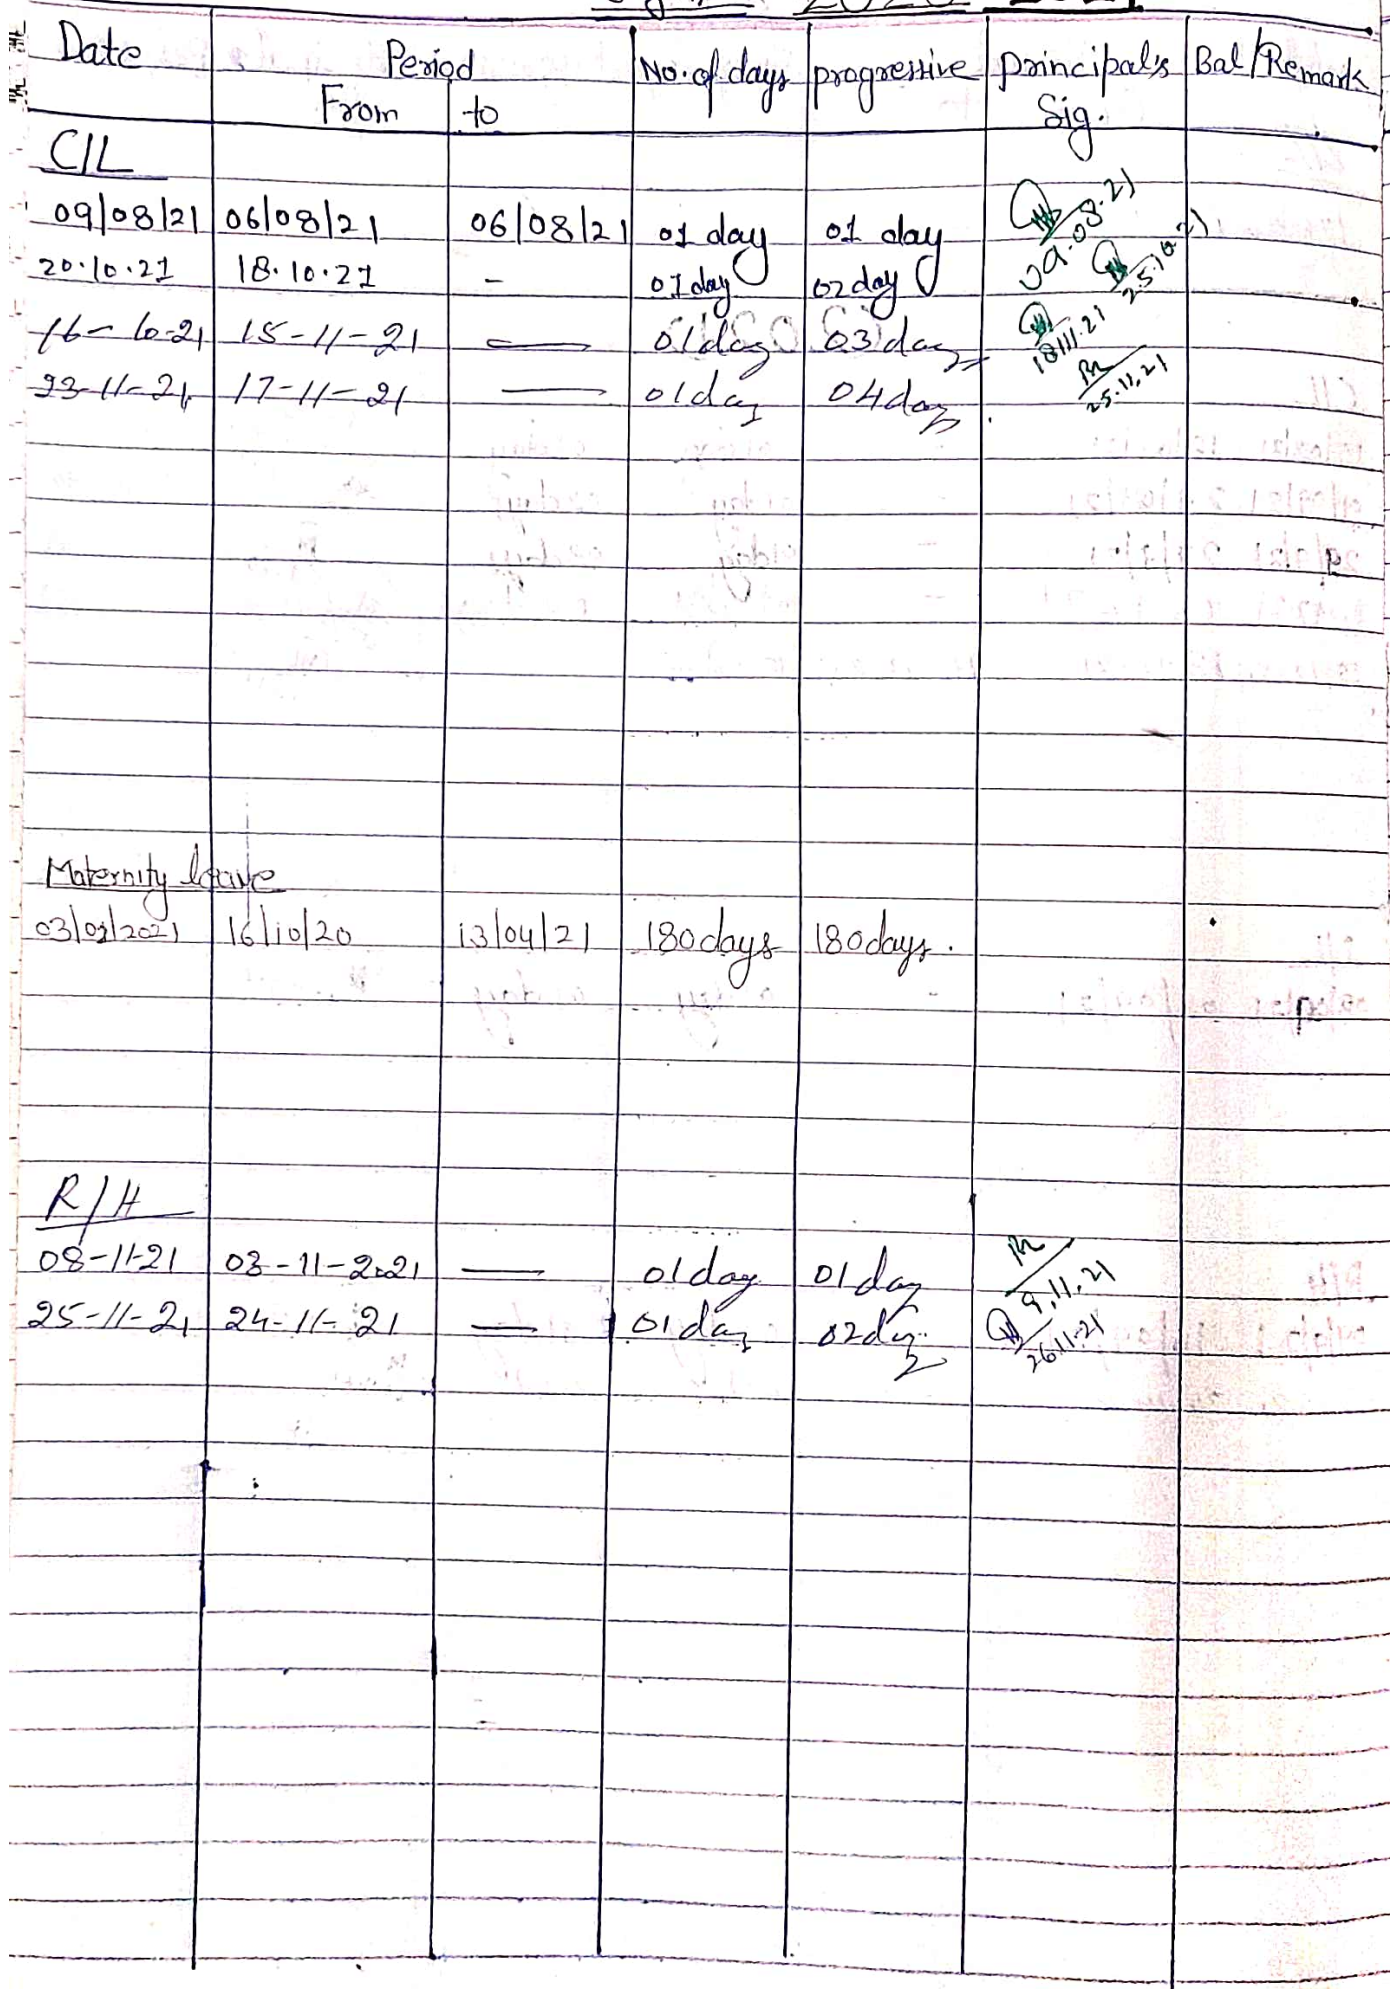 2020 2021
Date Period No. of days progressive principal's Bal/Remark
From to Sig.
C/L
09/08/21 06/08/21 06/08/21 01 day 01 day 09.08.21
20.10.21 18.10.21 - 01 day 02 day 25.10.21
16-10-21 15-11-21 — 01 day 03 day 18/11.21
23-11-21 17-11-21 — 01 day 04 day 25.11.21
Maternity leave
03/02/2021 16/10/20 13/04/21 180 days 180 days.
R/H
08-11-21 03-11-2021 — 01 day 01 day 9.11.21
25-11-21 24-11-21 — 01 day 02 day 26.11.21